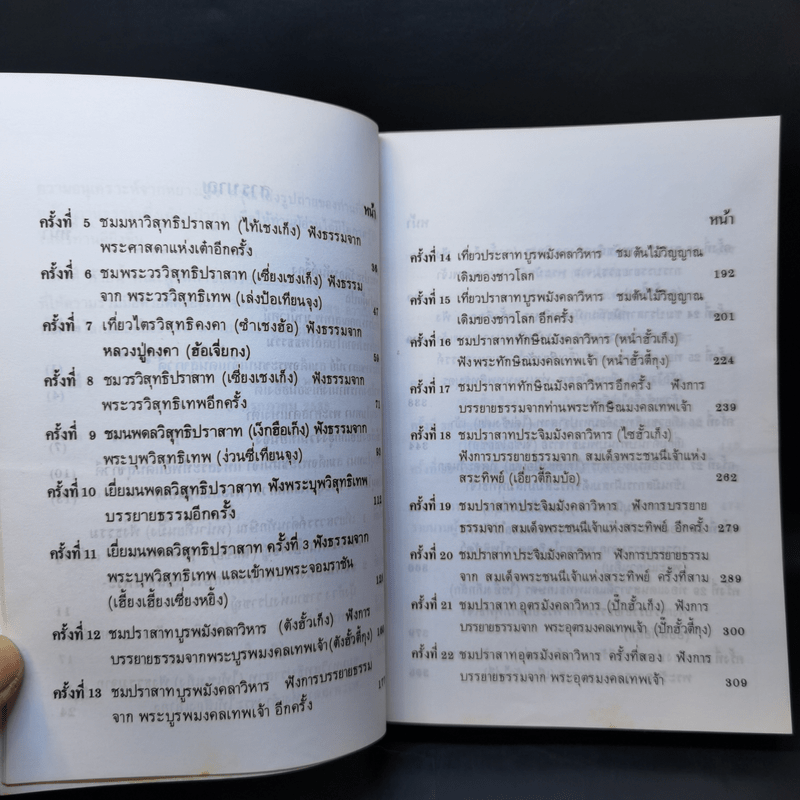 หน้า
ครั้งที่ 5 ชมมหาวิสุทธิปราสาท (ไท้เชงเก็ง) ฟังธรรมจาก
พระศาสดาแห่งเต๋าอีกครั้ง
ครั้งที่ 6 ชมพระวรวิสุทธิปราสาท (เซี่ยงเชงเก็ง) ฟังธรรม
จาก พระวรวิสุทธิเทพ (เล่งป้อเทียนจุง) 47
ครั้งที่ 7 เที่ยวไตรวิสุทธิคงคา (ซำเชงฮ้อ) ฟังธรรมจาก
หลวงปู่คงคา (ฮ้อเจี่ยกง)
ครั้งที่ 8 ชมวรวิสุทธิปราสาท (เซี่ยงเชงเก็ง) ฟังธรรมจาก
พระวรวิสุทธิเทพอีกครั้ง 71
ครั้งที่ 9 ชมนพดลวิสุทธิปราสาท (เง็กฮือเก็ง) ฟังธรรมจาก
พระบุพวิสุทธิเทพ (ง่วนซี่เทียนจุง)
ครั้งที่ 10 เยี่ยมนพดลวิสุทธิปราสาท ฟังพระบุพวิสุทธิเทพ
บรรยายธรรมอีกครั้ง
ครั้งที่ 11 เยี่ยมนพดลวิสุทธิปราสาท ครั้งที่ 3 ฟังธรรมจาก
พระบุพวิสุทธิเทพ และเข้าพบพระจอมราชัน
(เฮี้ยงเฮี้ยงเซี่ยงหยิ้ง)
ครั้งที่ 12 ชมปราสาทบูรพมังคลาวิหาร (ตังฮั้วเก็ง) ฟังการ
บรรยายธรรมจากพระบูรพมงคลเทพเจ้า (ตังฮั้วตี้กุง)
ครั้งที่ 13 ชมปราสาทบูรพมังคลาวิหาร ฟังการบรรยายธรรม
จาก พระบูรพมงคลเทพเจ้า อีกครั้ง
หน้า
ครั้งที่ 14 เที่ยวปราสาทบูรพมังคลาวิหาร ชมต้นไม้วิญญาณ
เดิมของชาวโลก 192
ครั้งที่ 15 เที่ยวปราสาทบูรพมังคลาวิหาร ชมต้นไม้วิญญาณ
เดิมของชาวโลก อีกครั้ง 201
ครั้งที่ 16 ชมปราสาททักษิณมังคลาวิหาร (หน่ำฮั้วเก็ง)
ฟังพระทักษิณมงคลเทพเจ้า (หน่ำฮั้วตี้กุง) 224
ครั้งที่ 17 ชมปราสาททักษิณมังคลาวิหารอีกครั้ง ฟังการ
บรรยายธรรมจากท่านพระทักษิณมงคลเทพเจ้า 239
ครั้งที่ 18 ชมปราสาทประจิมมังคลาวิหาร (ไซฮั้วเก็ง)
ฟังการบรรยายธรรมจาก สมเด็จพระชนนีเจ้าแห่ง
สระทิพย์ (เอี่ยวตี้กิมบ้อ) 262
ครั้งที่ 19 ชมปราสาทประจิมมังคลาวิหาร ฟังการบรรยาย
ธรรมจาก สมเด็จพระชนนีเจ้าแห่งสระทิพย์ อีกครั้ง 279
ครั้งที่ 20 ชมปราสาทประจิมมังคลาวิหาร ฟังการบรรยายธรรม
จาก สมเด็จพระชนนีเจ้าแห่งสระทิพย์ ครั้งที่สาม 289
ครั้งที่ 21 ชมปราสาทอุตรมังคลาวิหาร (ปักฮั้วเก็ง) ฟังการ
บรรยายธรรมจาก พระอุตรมงคลเทพเจ้า (ปักฮั้วตี้กุง) 300
ครั้งที่ 22 ชมปราสาทอุตรมังคลาวิหาร ครั้งที่สอง ฟังการ
บรรยายธรรมจาก พระอุตรมงคลเทพเจ้า 309